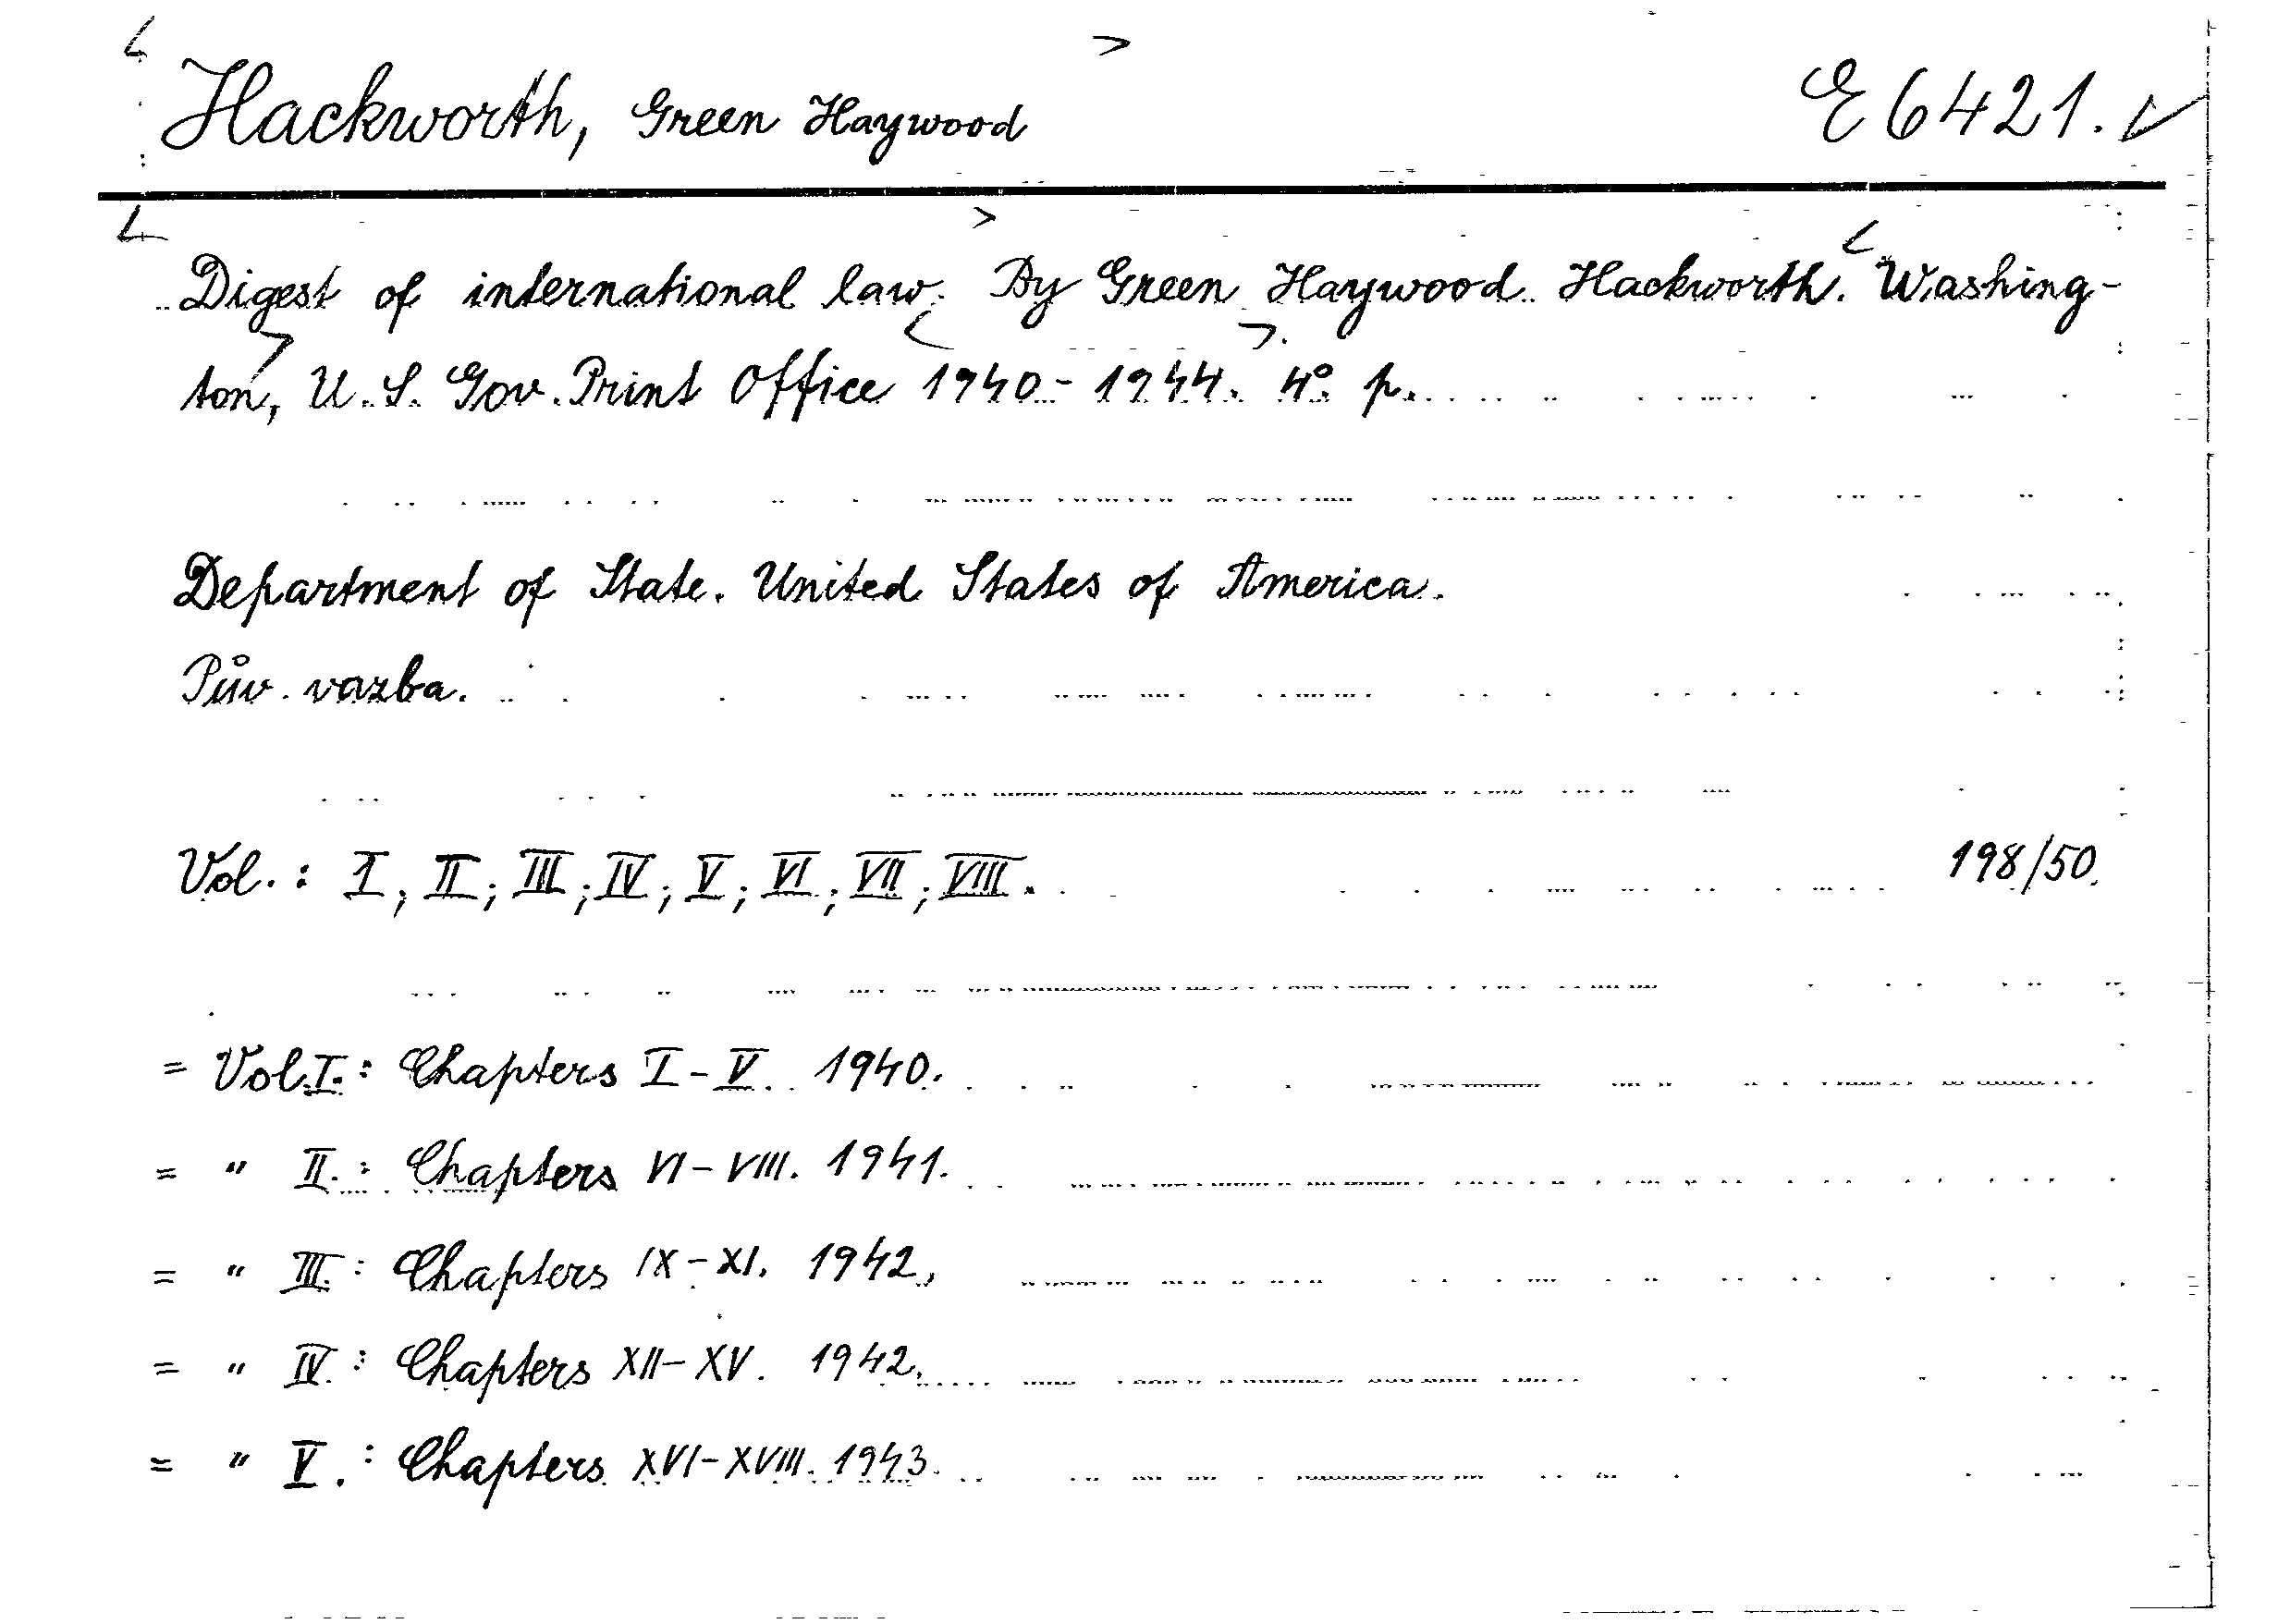 Hackworth, Green Haywood E 6421.
Digest of international law. By Green Haywood Hackworth. Washing-
ton, U.S. Gov. Print Office 1940-1944. 4°. p.
Department of State. United States of America.
Pův. vazba.
Vol.: I, II; III; IV; V; VI; VII; VIII. 198/50.
= Vol. I.: Chapters I-V. 1940.
= " II.: Chapters VI-VIII. 1941.
= " III.: Chapters IX-XI. 1942.
= " IV.: Chapters XII-XV. 1942.
= " V.: Chapters XVI-XVIII. 1943.